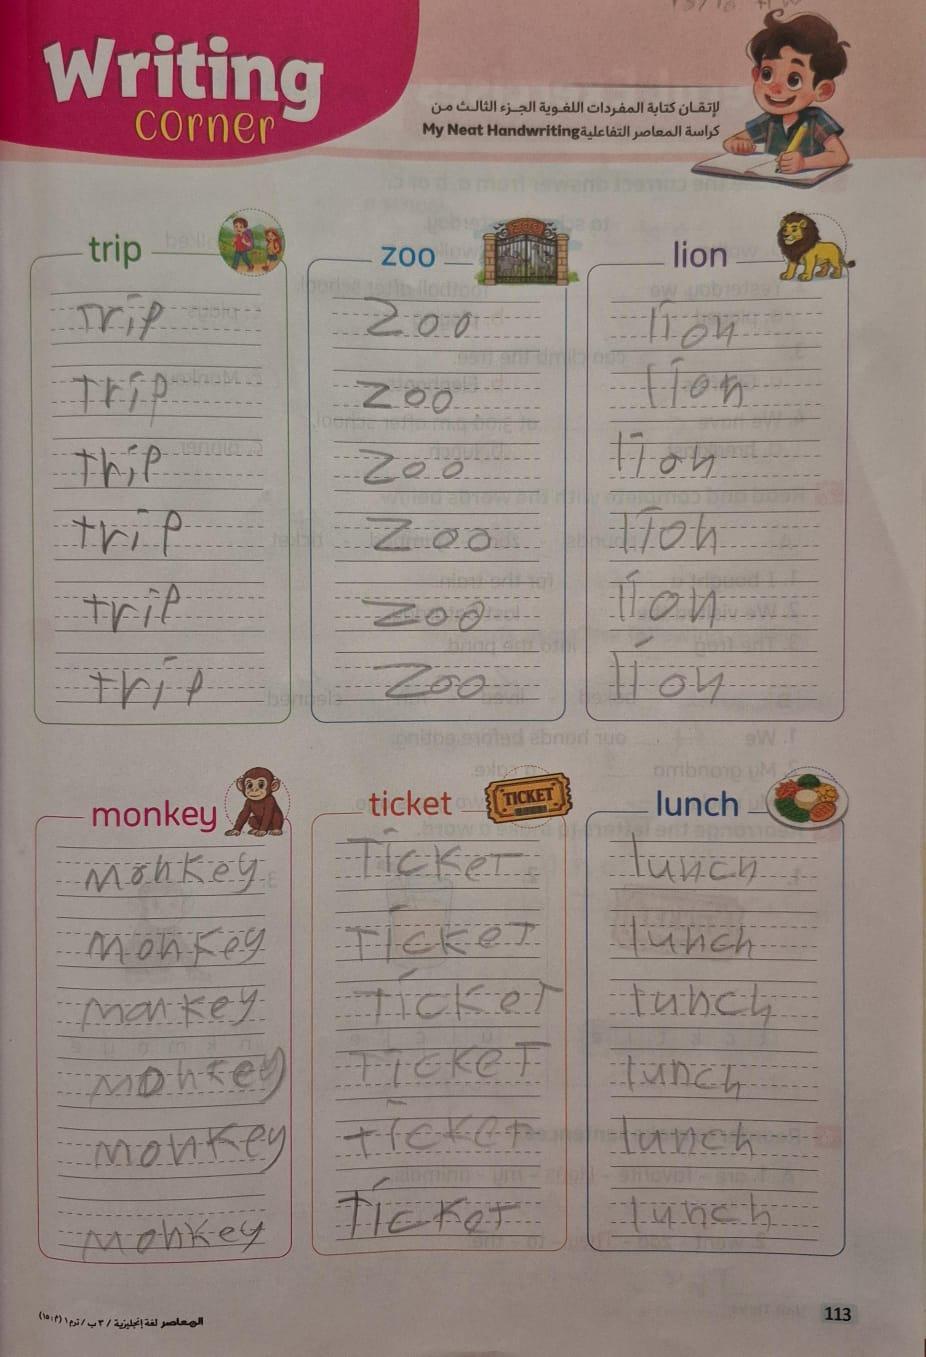 Writing
corner
لإتقـان كتابة المفردات اللغـوية الجـزء الثالـث مـن
كراسة المعاصر التفاعلية My Neat Handwriting
trip
trip
trip
trip
trip
trip
trip
ZOO
zoo
Zoo
zoo
zoo
Zoo
zoo
Zoo
lion
lion
lion
lion
lion
lion
lion
monkey
monkey
monkey
monkey
monkey
monkey
monkey
TICKET
ticket
TicKeT
TicKeT
TicKeT
TicKeT
ticKet
TicKeT
lunch
lunch
lunch
lunch
lunch
lunch
lunch
المعاصر لغة إنجليزية / ٣ ب / ترم ١ (م: ١٥)
113